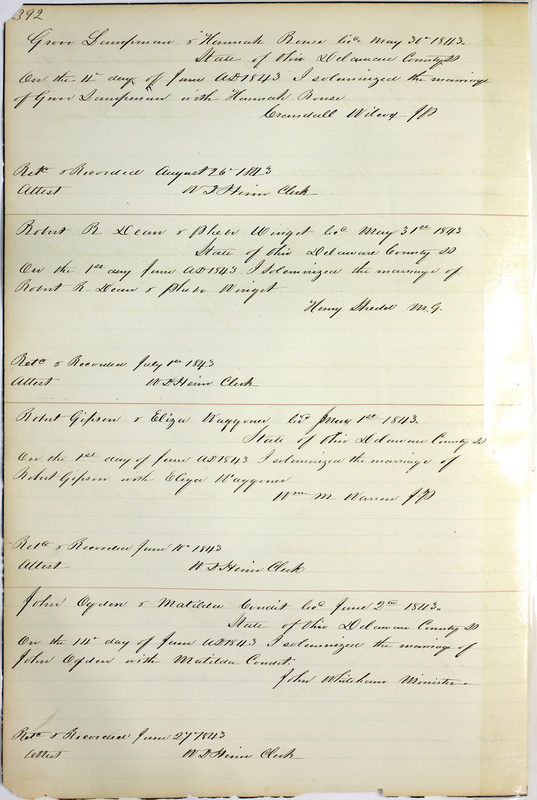 392
Grove Lampman & Hannah Rouse Lic. May 30th 1843.
State of Ohio Delaware County SS
On the 4th day of June AD 1843 I solemnized the marriage
of Grove Lampman with Hannah Rouse
Crandall Wilcox JP
Retd & Recorded August 26th 1843
Attest W D Heim Clerk
Robert R Dean & Pheba Winget Lic May 31st 1843
State of Ohio Delaware County SS
On the 1st day June AD 1843 I solemnized the marriage of
Robert R Dean & Pheba Winget
Henry M.G.
Retd & Recorded July 1st 1843
Attest W D Heim Clerk
Robert Gipson & Eliza Waggoner Lic 1st 1843.
State of Ohio Delaware County SS
On the 1st day of June AD 1843 I solemnized the marriage of
Robert Gipson with Eliza Waggoner
Wm M Warren JP
Retd & Recorded June 1843
Attest W D Heim Clerk
John Ogden & Matilda Condit Lic June 2nd 1843.
State of Ohio Delaware County SS
On the day of June AD 1843 I solemnized the marriage of
John Ogden with Matilda Condit.
John Whitehead Minister.
Retd & Recorded June 27th 1843
Attest W D Heim Clerk